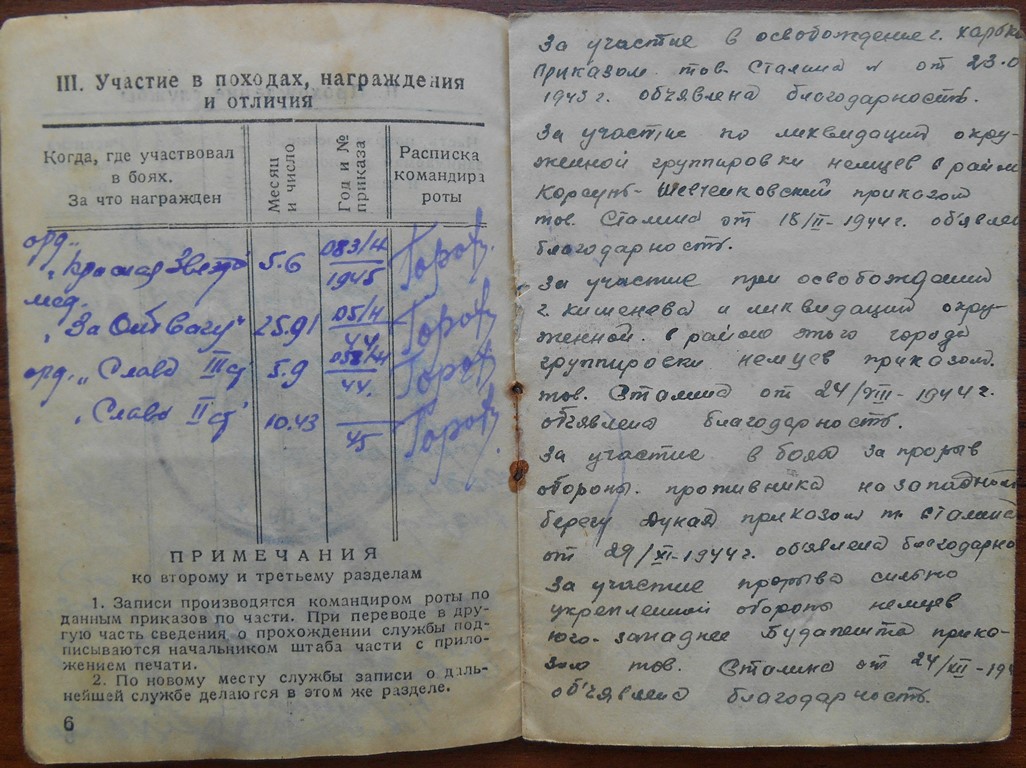 III. Участие в походах, награждения
и отличия
Когда, где участвовал
в боях.
За что награжден
Месяц
и число
Год и №
приказа
Расписка
командира
роты
орд.
„Красная Звезда
5.6
083/н
1945
мед.
„За Отвагу“
25.91
05/н
44
орд. „Слава III ст
5.9
058/н
44.
„Слава II ст“
10.43
45
ПРИМЕЧАНИЯ
ко второму и третьему разделам
1. Записи производятся командиром роты по
данным приказов по части. При переводе в дру-
гую часть сведения о прохождении службы под-
писываются начальником штаба части с прило-
жением печати.
2. По новому месту службы записи о даль-
нейшей службе делаются в этом же разделе.
6
За участие в освобождение г. Харьк
приказом тов. Сталина от 23.0
1943 г. объявлена благодарность.
За участие по ликвидации окру-
женной группировки немцев в район
Корсунь-Шевченковский приказом
тов. Сталина от 18/II-1944 г. объявлен
благодарность.
За участие при освобождении
г. Кишенева и ликвидации окру-
женной в районе этого города
группировски немцев приказом.
тов. Сталина от 24/VIII-1944 г.
объявлена благодарность.
За участие в боях за прорыв
обороны. противника на западном
берегу Дуная приказом т. Сталина
от 29/XI-1944 г. объявлена благодарно
За участие прорыва сильно
укрепленной обороны немцев
юго-западнее Будапешта прика-
зом тов. Сталина от 24/XII-194
объявлена благодарность.